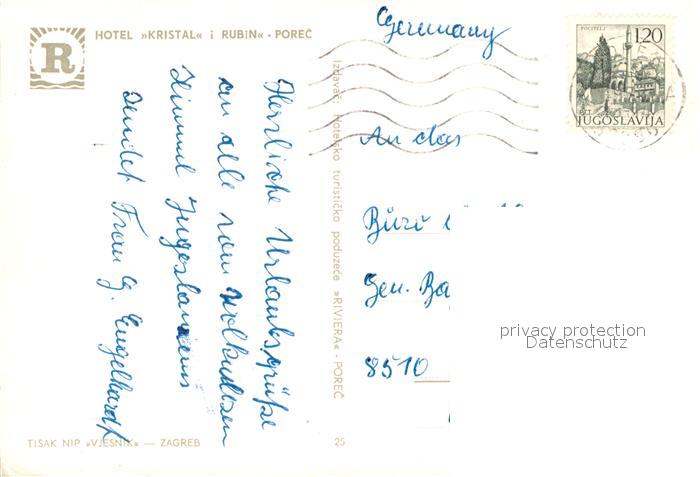 HOTEL »KRISTAL« i RUBIN« - POREČ
R
Herrliche Urlaubsgrüße
an alle vom wolkenlosen
Himmel Jugoslawiens
sendet Frau G. Engelhardt
TISAK NIP »VJESNIK« — ZAGREB
25
Izdavač: Hotelsko turističko poduzeće »RIVIERA« - POREČ
Germany
POČITELJ
1,20
PTT
JUGOSLAVIJA
An das
Büro
Gen. Ba
8510
privacy protection
Datenschutz